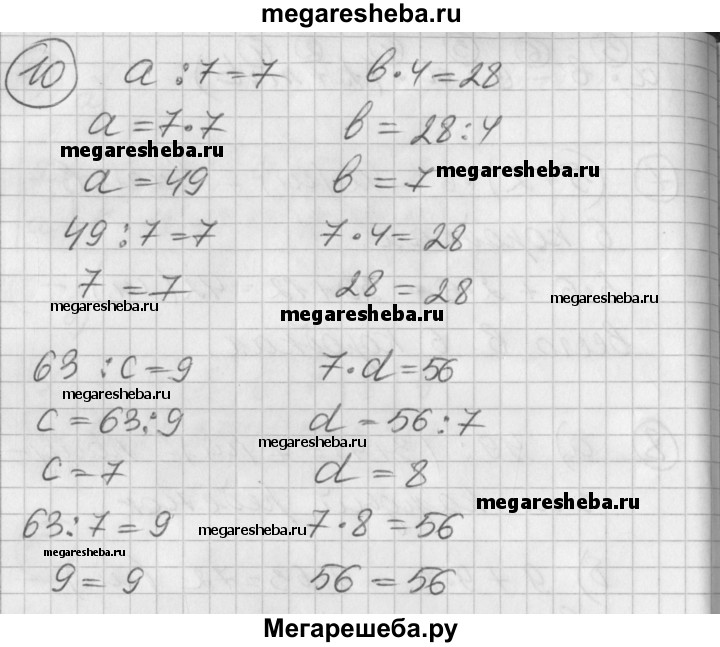 megaresheba.ru
10 a : 7 = 7 в · 4 = 28
a = 7 · 7 в = 28 : 4
megaresheba.ru megaresheba.ru
a = 49 в = 7
49 : 7 = 7 7 · 4 = 28
7 = 7 28 = 28
megaresheba.ru megaresheba.ru megaresheba.ru
63 : c = 9 7 · d = 56
megaresheba.ru
c = 63 : 9 d = 56 : 7
megaresheba.ru
c = 7 d = 8
megaresheba.ru
63 : 7 = 9 7 · 8 = 56
megaresheba.ru
megaresheba.ru
9 = 9 56 = 56
Мегарешеба.ру